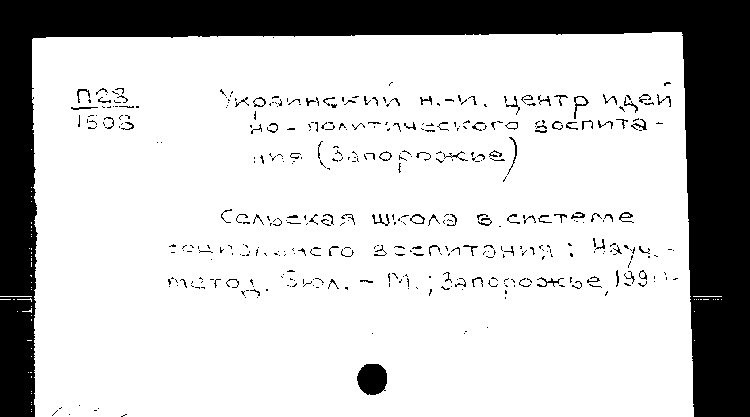 П28
1508
Украинский н.-и. центр идей
но-политического воспита-
ния (Запорожье)
Сельская школа в системе
социального воспитания: Науч.-
метод. бюл. - М.; Запорожье,